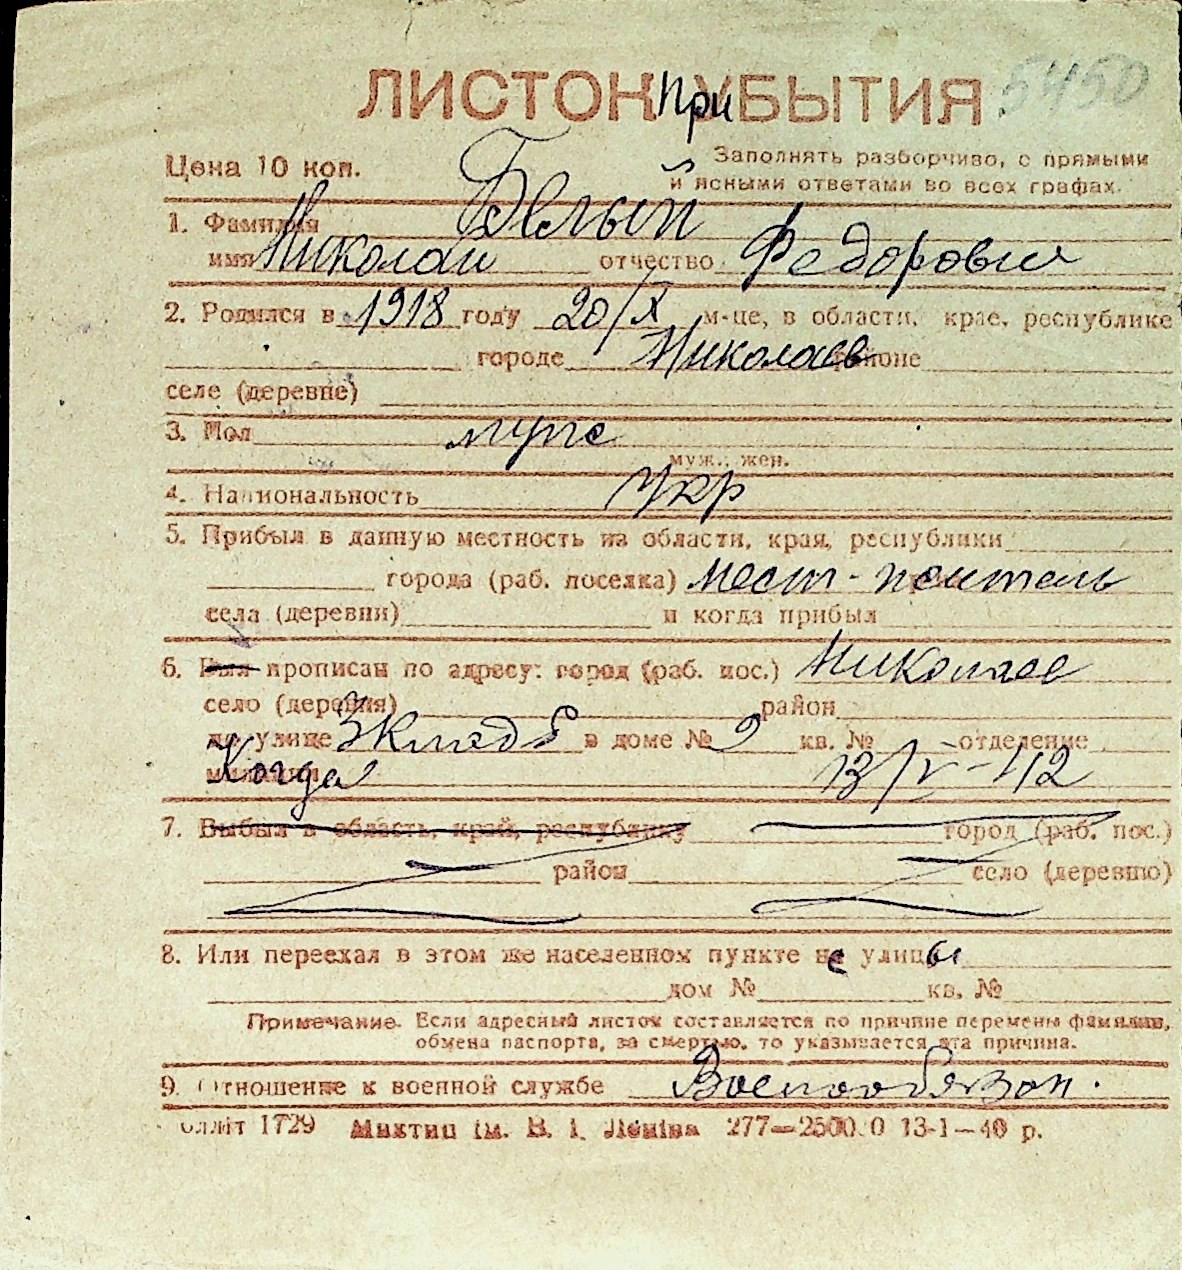 ЛИСТОК При УБЫТИЯ 5450
Цена 10 коп.
Заполнять разборчиво, с прямыми
и ясными ответами во всех графах.
1. Фамилия Белый
имя Николай отчество Федорович
2. Родился в 1918 году 20/X м-це, в области, крае, республике
городе Николаев районе
селе (деревне)
3. Пол муж
муж., жен.
4. Национальность Укр
5. Прибыл в данную местность из области, края, республики
города (раб. поселка) мест-житель
села (деревни) и когда прибыл
6. Был прописан по адресу: город (раб. пос.) Николаев
село (деревня) район
по улице в доме № 9 кв. № отделение
милиции Когда 13/V-42
7. Выбыл в область, край, республику город (раб. пос.)
район село (деревню)
8. Или переехал в этом же населенном пункте не улицы
дом № кв. №
Примечание. Если адресный листок составляется по причине перемены фамилии,
обмена паспорта, за смертью, то указывается эта причина.
9. Отношение к военной службе Военнообязан.
1729 Миктип ім. В. І. Леніна 277—2500.0 13-1—40 р.